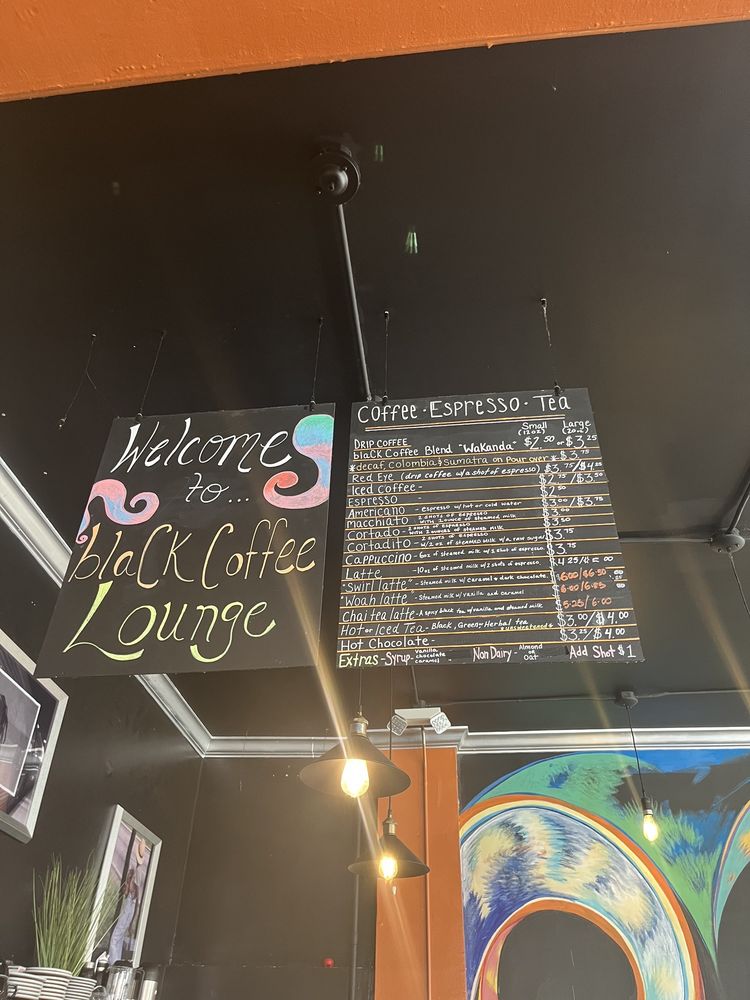 Welcome
to...
blaCK Coffee
Lounge
Coffee · Espresso · Tea
Small Large
(12oz) (20oz)
DRIP COFFEE
blaCK Coffee Blend "WaKanda" $2.50 or $3.25
*decaf, colombia & sumatra on Pour over * $3.75
Red Eye (drip coffee w/a shot of espresso) $3.75/$4.25
Iced coffee - $2.75/$3.50
Espresso $2.50
Americano - espresso w/hot or cold water $3.00/$3.75
Macchiato - 2 shots of espresso with 1 ounce of steamed milk $3.00
Cortado - 2 shots of espresso with 2 ounces of steamed milk $3.50
Cortadito - w/2 oz of steamed milk w/a raw sugar $3.75
Cappuccino - 6oz of steamed milk w/2 shots of espresso $3.75
Latte - 10oz of steamed milk w/2 shots of espresso
"Swirl latte" - steamed milk w/ caramel & dark chocolate
"Woah latte" - steamed milk w/ vanilla and caramel
Chai tea latte - A spicy black tea w/ vanilla and steamed milk 5.25/6.00
Hot or Iced Tea - Black, Green, Herbal tea *unsweetened* $3.00/$4.00
Hot Chocolate - $3.25/$4.00
Extras - Syrup - Vanilla, chocolate, caramel Non Dairy - Almond or Oat Add Shot $1